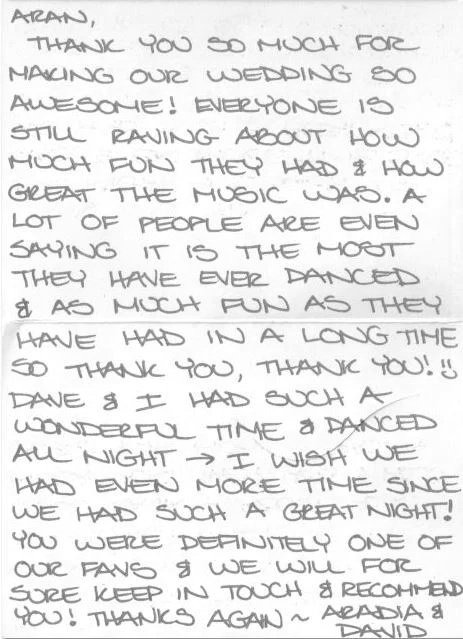 ARAN,
THANK YOU SO MUCH FOR
MAKING OUR WEDDING SO
AWESOME! EVERYONE IS
STILL RAVING ABOUT HOW
MUCH FUN THEY HAD & HOW
GREAT THE MUSIC WAS. A
LOT OF PEOPLE ARE EVEN
SAYING IT IS THE MOST
THEY HAVE EVER DANCED
& AS MUCH FUN AS THEY
HAVE HAD IN A LONG TIME
SO THANK YOU, THANK YOU! :)
DAVE & I HAD SUCH A
WONDERFUL TIME & DANCED
ALL NIGHT → I WISH WE
HAD EVEN MORE TIME SINCE
WE HAD SUCH A GREAT NIGHT!
YOU WERE DEFINITELY ONE OF
OUR FAVS & WE WILL FOR
SURE KEEP IN TOUCH & RECOMMEND
YOU! THANKS AGAIN ~ ARADIA &
DAVID